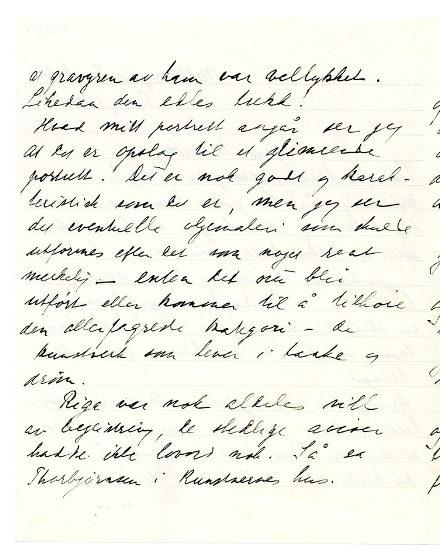 av ham var vellykket.
Likedan den
Hvad mitt portrett angår ser jeg
at det er opslag til et glimrende
portrett. Det er nok godt og karak-
teristisk som det er, men jeg ser
det eventuelle oljemaleri som skulde
utformes efter det som noget
merkelig – enten det nu blir
utført eller kommer til å tilhøre
den allerfagreste kategori – de
kunstverk som lever i tanke og
drøm.
Riga var nok aldeles vill
av begeistring, de aviser
hadde ikke lovord nok. Så er
Thorbjørnsen i Kunstnernes hus.